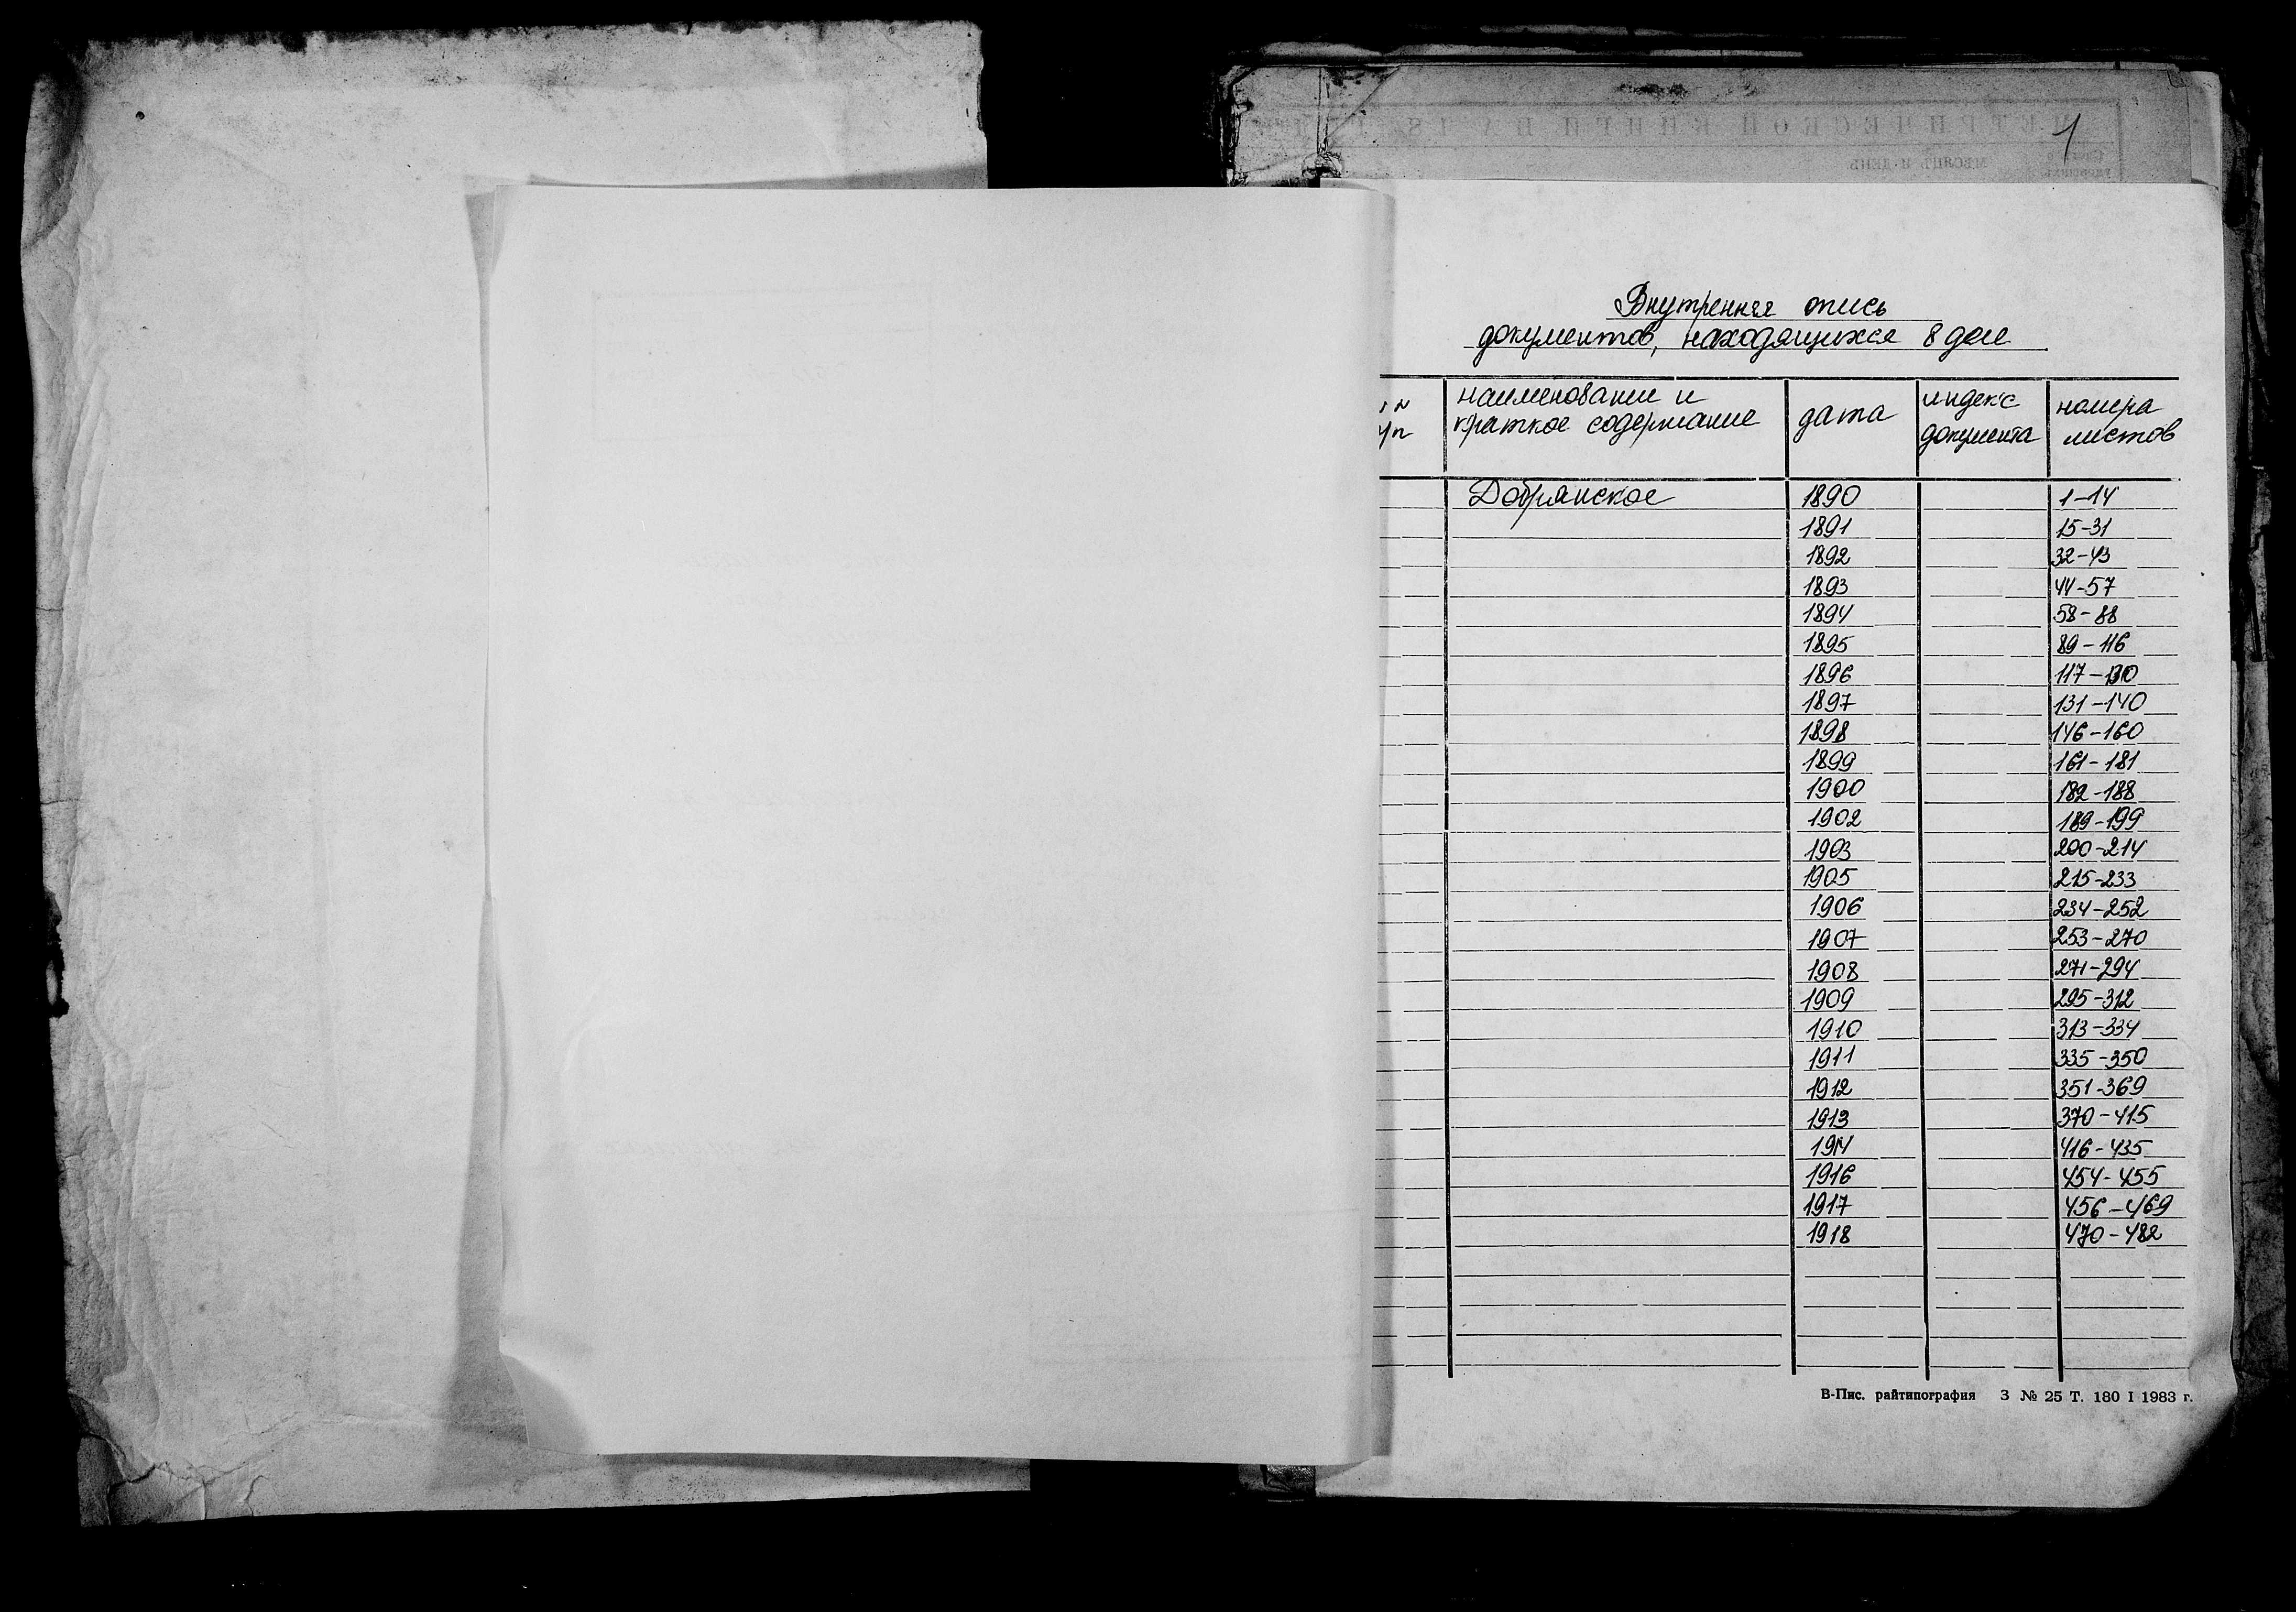 1
Внутренняя опись
документов, находящихся в деле
наименование и краткое содержание | дата | индекс документа | номера листов
Добрянское | 1890 | 1-14
1891 | 15-31
1892 | 32-43
1893 | 44-57
1894 | 58-88
1895 | 89-116
1896 | 117-130
1897 | 131-140
1898 | 146-160
1899 | 161-181
1900 | 182-188
1902 | 189-199
1903 | 200-214
1905 | 215-233
1906 | 234-252
1907 | 253-270
1908 | 271-294
1909 | 295-312
1910 | 313-334
1911 | 335-350
1912 | 351-369
1913 | 370-415
1914 | 416-435
1916 | 454-455
1917 | 456-469
1918 | 470-482
В-Пис. райтипография З № 25 Т. 180 I 1983 г.